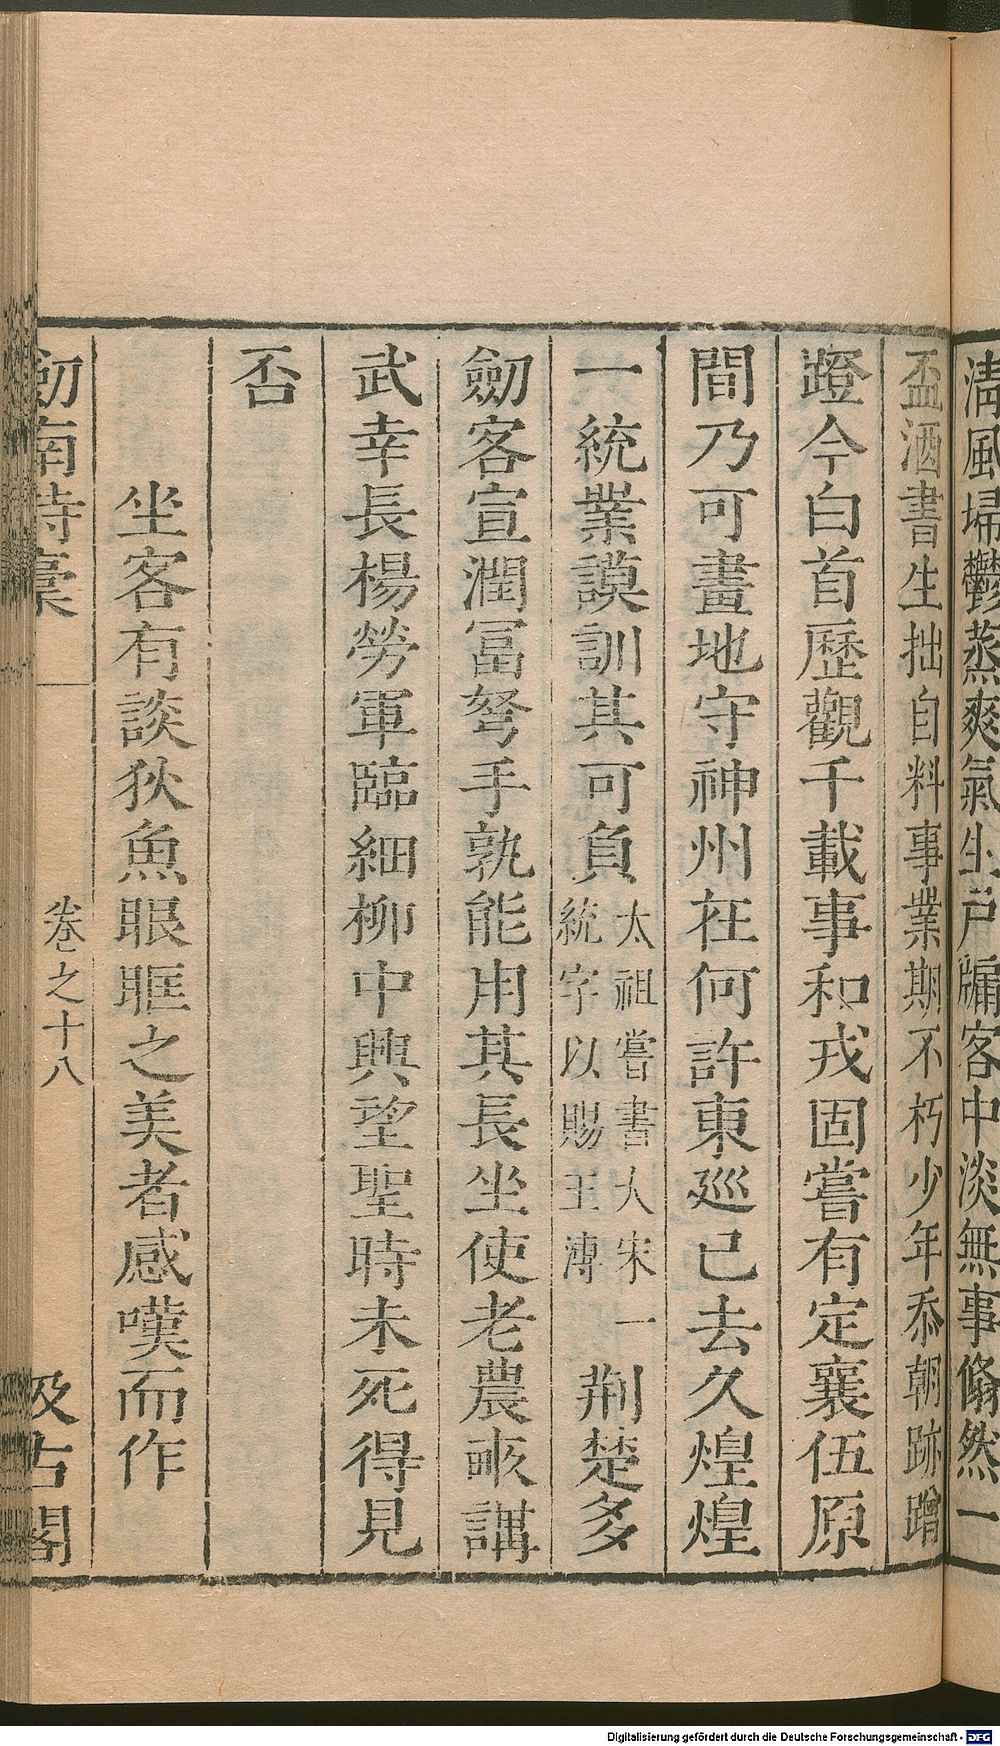 清風埽鬱蒸爽氣生戸牗客中淡無事翛然一
盃酒書生拙自料事業期不朽少年忝朝跡蹭
蹬今白首歷觀千載事和戎固嘗有定襄伍原
間乃可畫地守神州在何許東廵已去久煌煌
一統業謨訓其可負太祖嘗書大宋一統字以賜王溥荆楚多
劒客宣潤冨弩手孰能用其長坐使老農畞講
武幸長楊勞軍臨細柳中興望聖時未死得見
否
坐客有談狄魚眼眶之美者感嘆而作
劒南詩稾 卷之十八 汲古閣
Digitalisierung gefördert durch die Deutsche Forschungsgemeinschaft - DFG